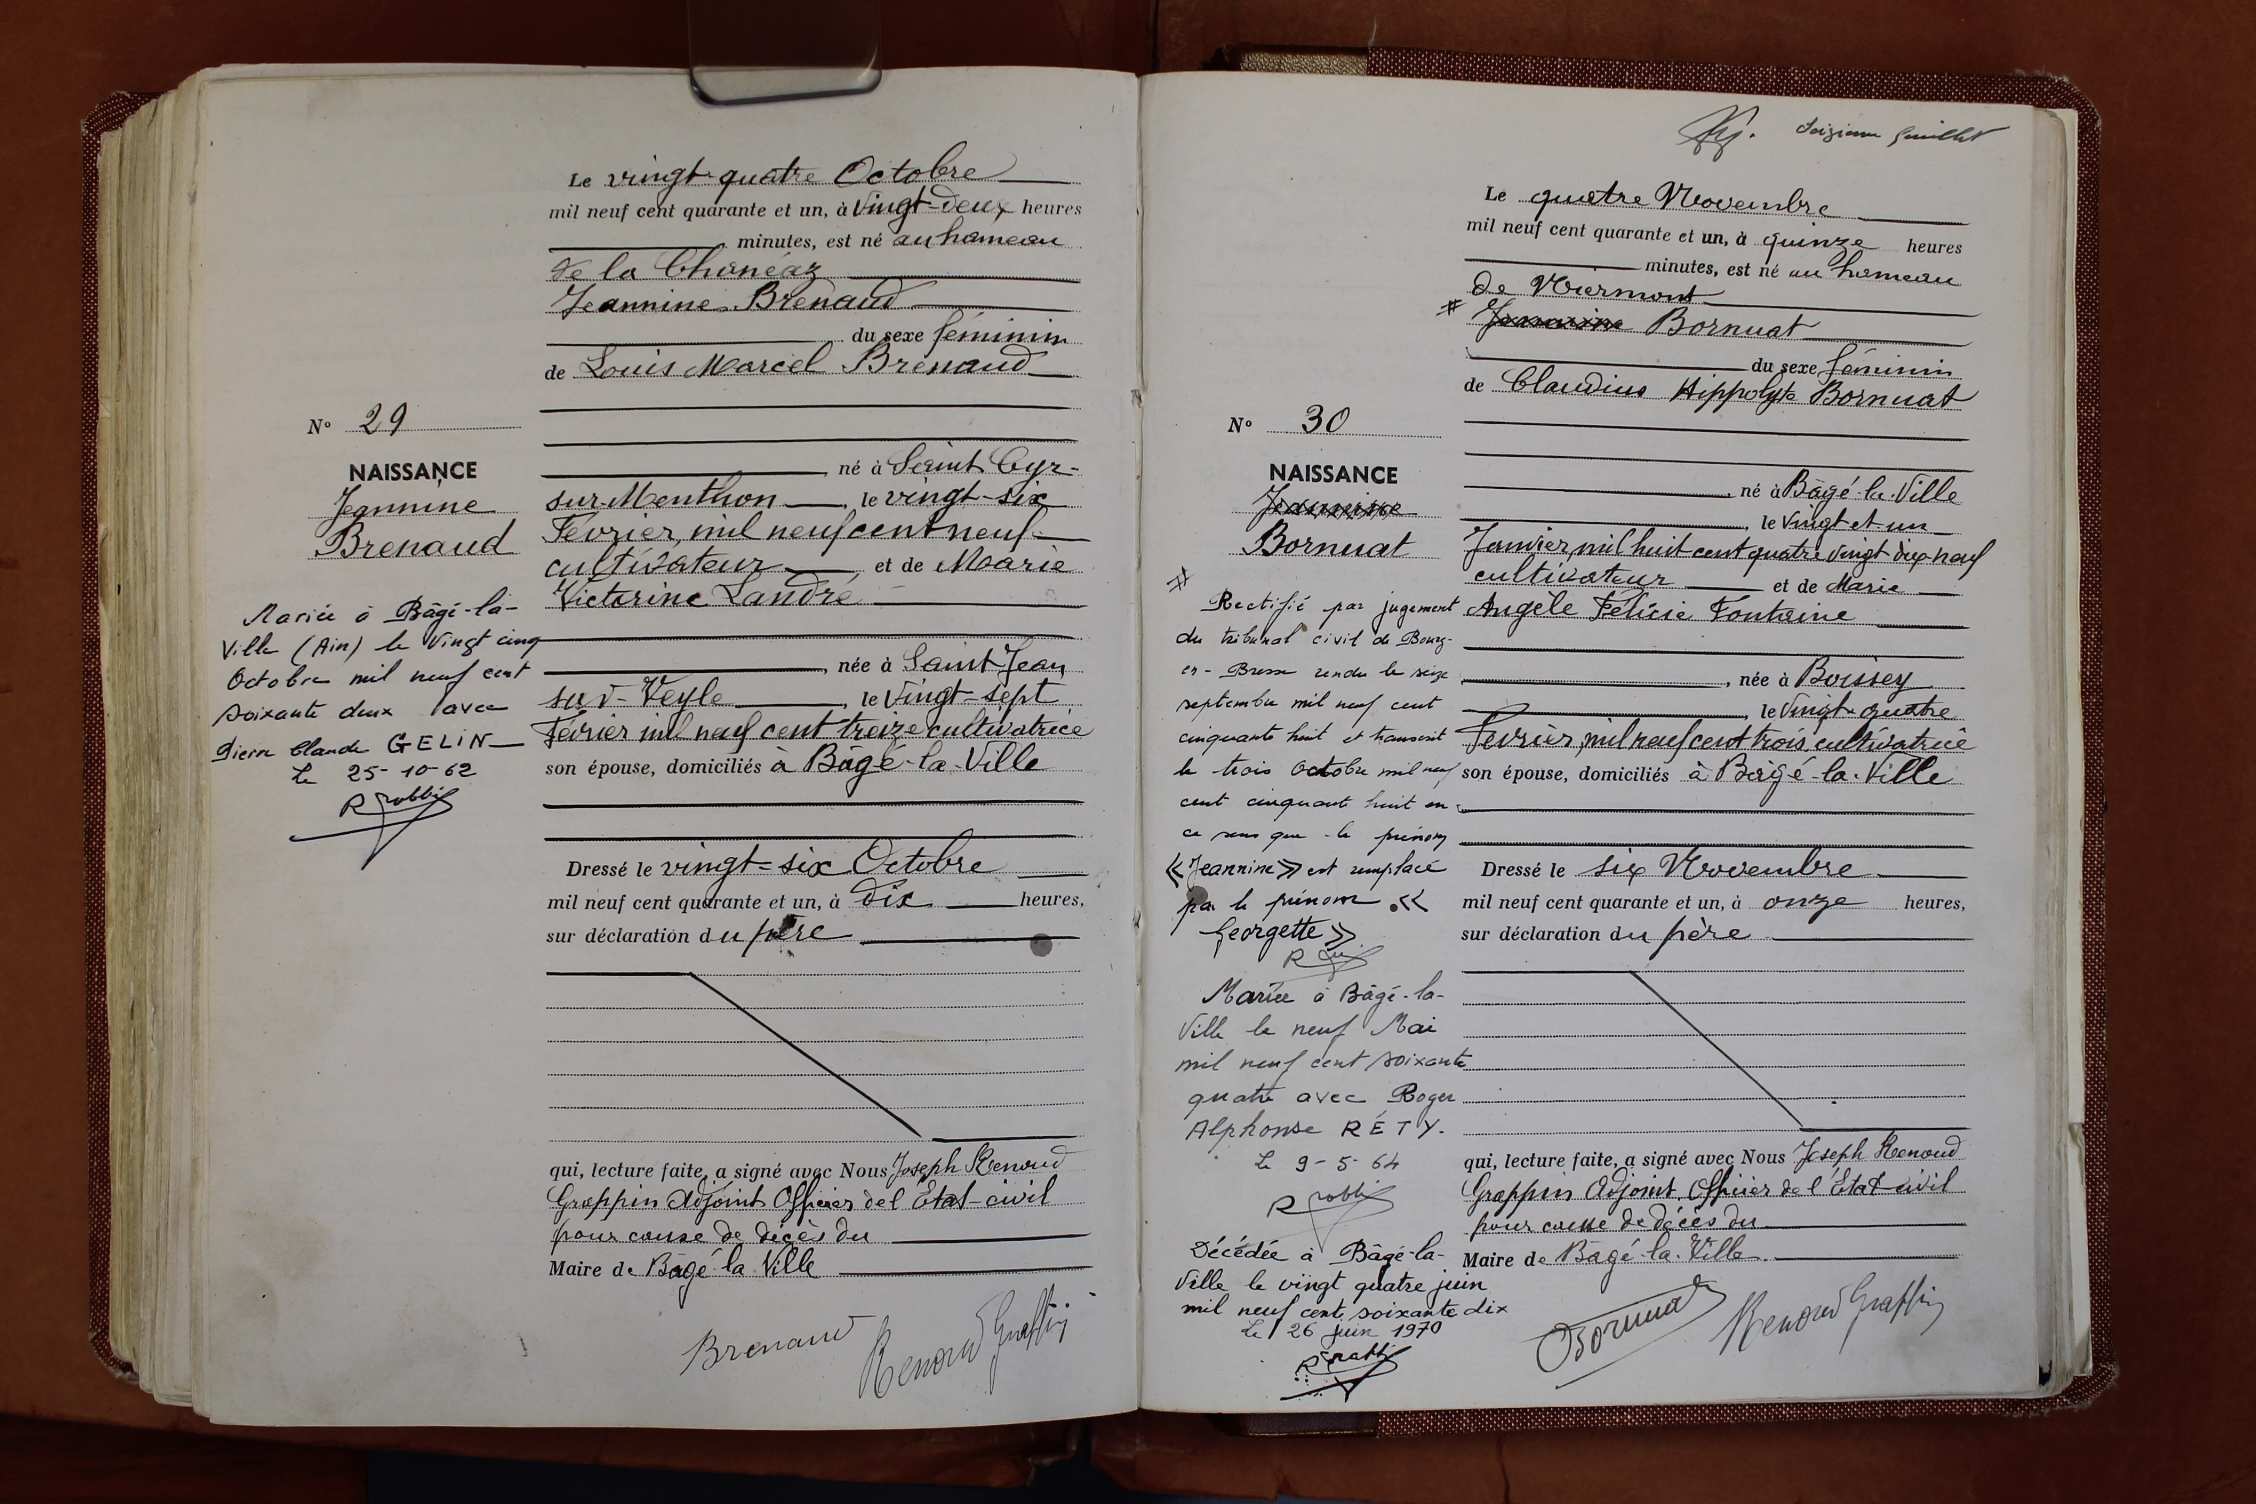 Le vingt-quatre Octobre
mil neuf cent quarante et un, à Vingt-deux heures
minutes, est né au hameau
de la Chanéaz
Jeannine Brenaud
du sexe féminin
de Louis Marcel Brenaud
N° 29
NAISSANCE
Jeannine
Brenaud
né à Saint Cyr-
sur-Menthon, le vingt-six
Février, mil neuf cent neuf
cultivateur, et de Marie
Victorine Landré
née à Saint Jean
sur-Veyle, le Vingt-sept
Février mil neuf cent treize cultivatrice
son épouse, domiciliés à Bâgé-la-Ville
Mariée à Bâgé-la-
Ville (Ain) le Vingt cinq
Octobre mil neuf cent
soixante deux avec
Pierre Claude GELIN
Le 25-10-62
Dressé le vingt-six Octobre
mil neuf cent quarante et un, à Dix heures,
sur déclaration du père
qui, lecture faite, a signé avec Nous Joseph Renoud
Grappin Adjoint Officier de l'État-civil
pour cause de décès du
Maire de Bâgé-la-Ville
Brenaud
Renoud Grappin
Le quatre Novembre
mil neuf cent quarante et un, à quinze heures
minutes, est né au hameau
de Viermont
# Jeannine Bornuat
du sexe féminin
de Claudius Hippolyte Bornuat
N° 30
NAISSANCE
Jeannine
Bornuat
né à Bâgé-la-Ville
, le Vingt et un
Janvier, mil huit cent quatre vingt dix neuf
cultivateur et de Marie
Angèle Félicie Fontaine
née à Boissey
, le Vingt-quatre
Février, mil neuf cent trois, cultivatrice
son épouse, domiciliés à Bâgé-la-Ville
#
Rectifié par jugement
du tribunal civil de Bourg-
en-Bresse rendu le seize
septembre mil neuf cent
cinquante huit et transcrit
le trois Octobre mil neuf
cent cinquante huit en
ce sens que le prénom
«Jeannine» est remplacé
par le prénom «
Georgette»
Mariée à Bâgé-la-
Ville le neuf Mai
mil neuf cent soixante
quatre avec Roger
Alphonse RÉTY.
Le 9-5-64
Décédée à Bâgé-la-
Ville le vingt quatre juin
mil neuf cent soixante dix
Le 26 juin 1970
Dressé le six Novembre
mil neuf cent quarante et un, à onze heures,
sur déclaration du père
qui, lecture faite, a signé avec Nous Joseph Renoud
Grappin Adjoint, Officier de l'État-civil
pour cause de décès du
Maire de Bâgé-la-Ville
Bornuat
Renoud Grappin